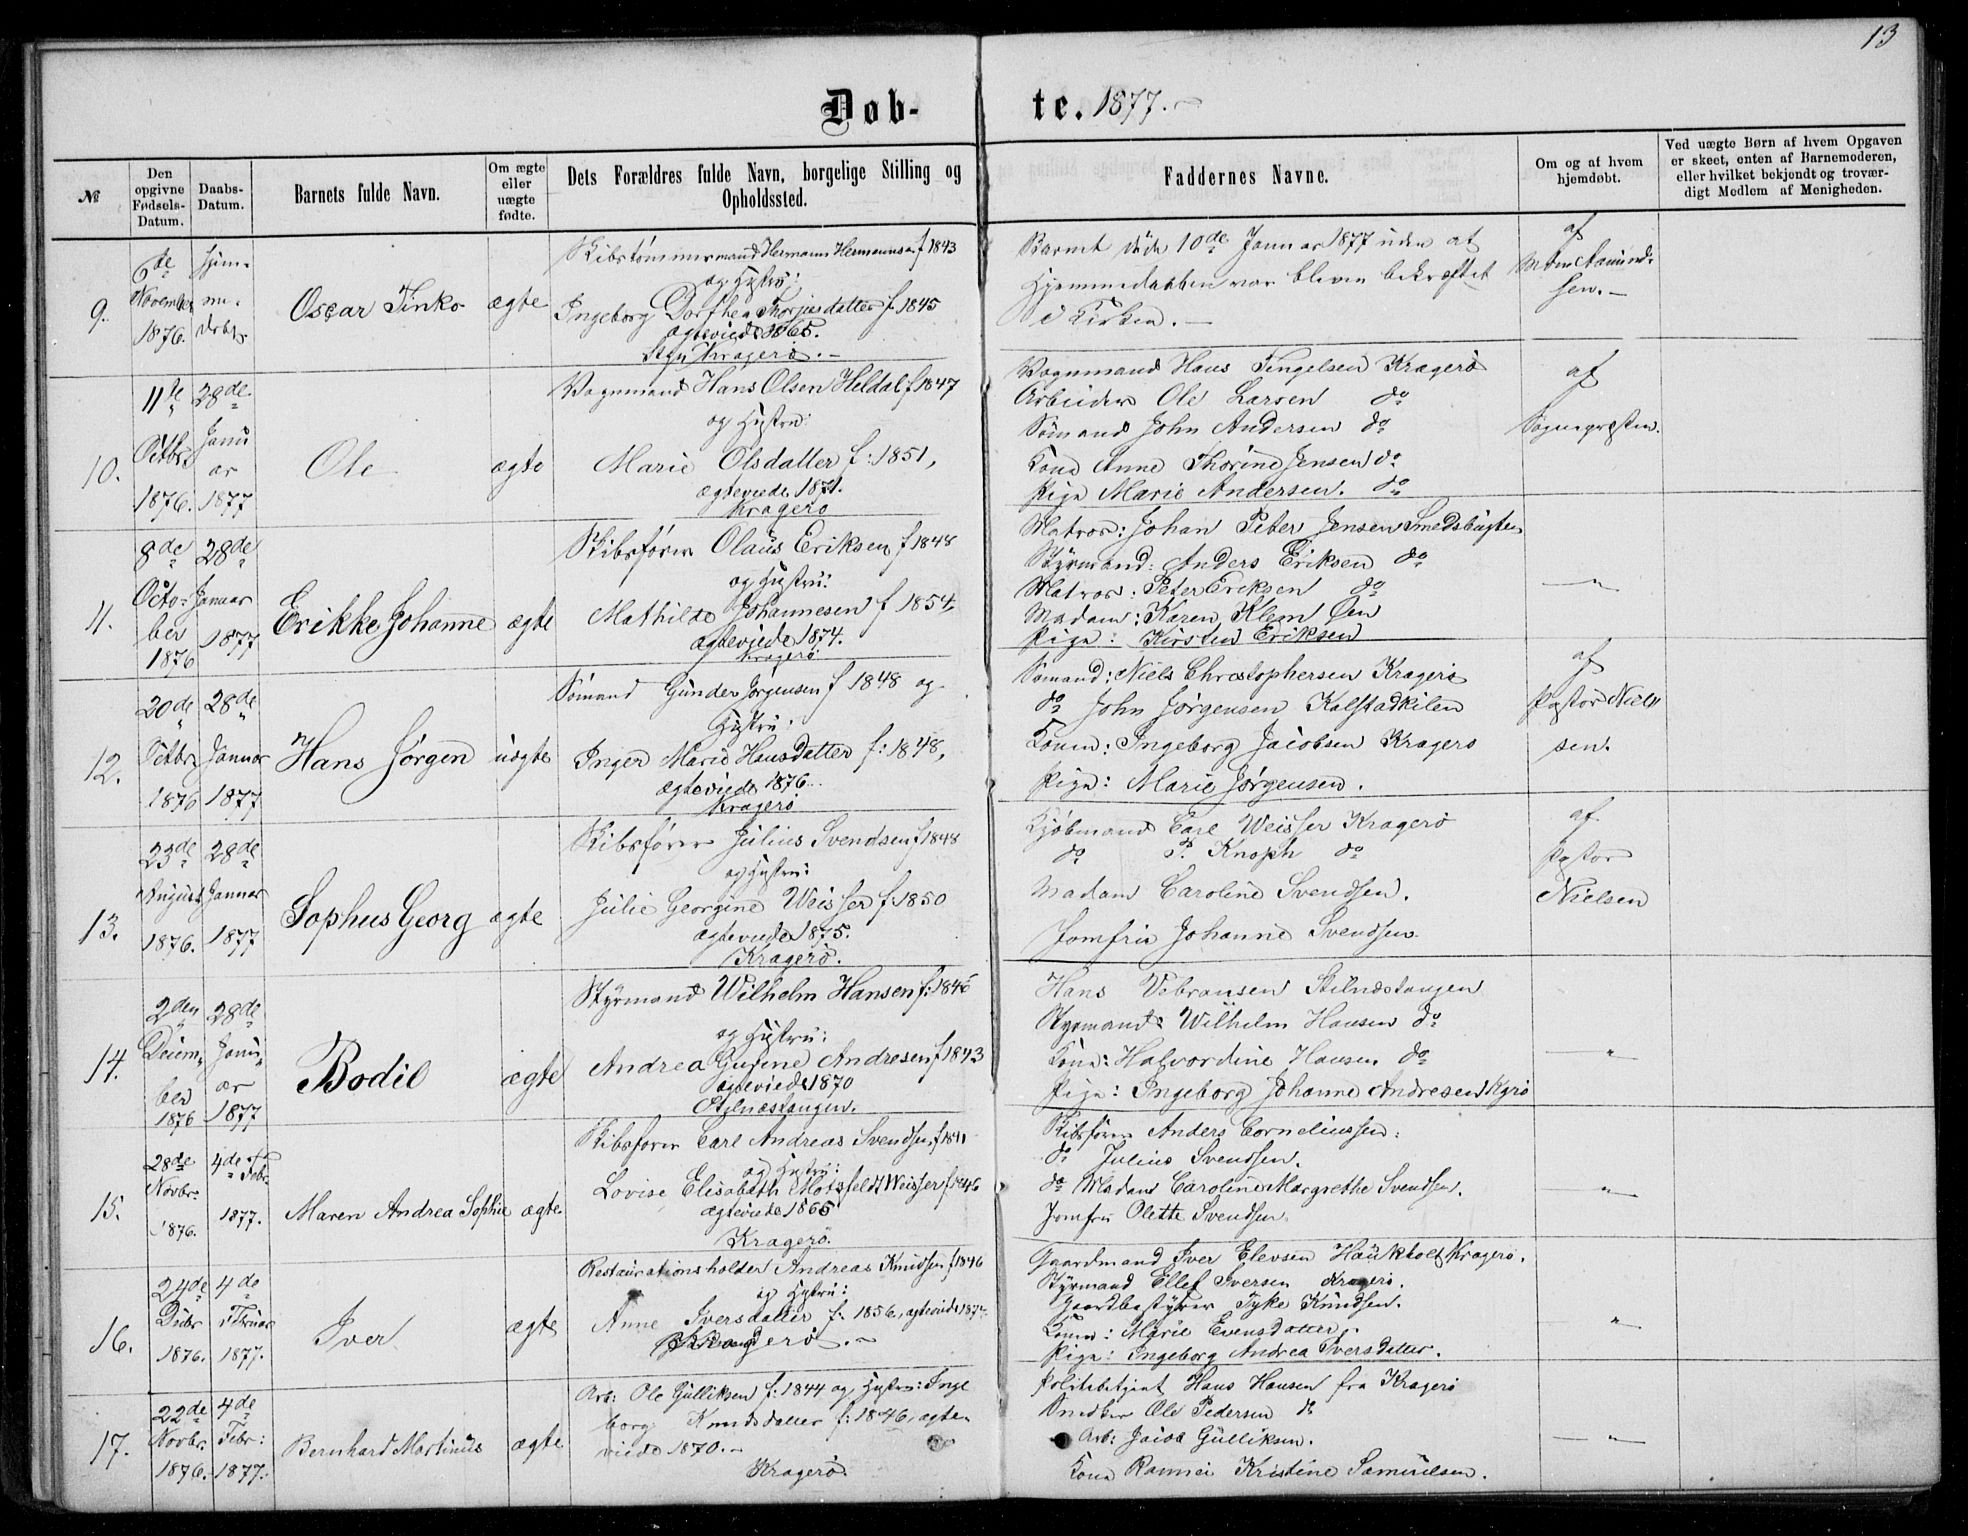 13
Døb-te. 1877.
№
Den opgivne Fødsels-Datum.
Daabs-Datum.
Barnets fulde Navn.
Om ægte eller uægte fødte.
Dets Forældres fulde Navn, borgelige Stilling og Opholdssted.
Faddernes Navne.
Om og af hvem hjemdøbt.
Ved uægte Børn af hvem Opgaven er skeet, enten af Barnemoderen, eller hvilket bekjendt og troværdigt Medlem af Menigheden.
9.
6te November 1876.
hjemmedøbt
Oscar Tinko
ægte
Skibstømmermand Hermann Hermannsen f 1843
og Hustru:
Ingeborg Dorthea Thorjusdatter f. 1845
ægteviede 1865.
Kragerö.
Barnet döde 10de Januar 1877 uden at
Hjemmedaaben var bleven bekræftet
i Kirken.
af
10.
11te Octbr 1876.
28de Januar 1877
Ole
ægte
Vognmand Hans Olsen Heldal f 1847
og Hustru:
Marie Olsdatter f: 1851,
ægteviede 1871.
Kragerö
Vognmand Hans Tingelsen Kragerö
Arbeider Ole Larsen do
Sömand John Andersen do
Kone Anne Thorine Jensen do
Pige Marie Andersen. do
af
Sognepræsten.
11.
8de October 1876
28de Januar 1877
Erikke Johanne
ægte
Skibsförer Olaus Eriksen f 1848
og Hustru:
Mathilde Johannesen f 1854,
ægteviede 1874.
Kragerö
Matros: Johan Peter Jensen Smedsbugten
Styrmand: Anders Eriksen do
Matros: Peter Eriksen do
Madam: Karen Klem Øen
Pige: Kirsten Eriksen
"
12.
20de 1876
28de Januar 1877
Hans Jörgen
uægte
Sömand Gunder Jörgensen f 1848 og
Hustru:
Inger Marie Hansdatter f: 1848,
ægteviede 1876.
Kragerö
Sömand: Niels Christophersen Kragerö
do John Jörgensen Kalstadkilen
Konen: Ingeborg Jacobsen Kragerö
Pige: Marie Jörgensen.
af
Pastor Nielsen.
13.
23de August 1876.
28de Januar 1877
Sophus Georg
ægte
Skibsförer Julius Svendsen f 1848
og Hustru:
Julie Georgine Weisser f. 1850
ægteviede 1875.
Kragerö.
Kjöbmand Carl Weisser Kragerö
do P. Knoph do
Madam Caroline Svendsen.
Jomfru Johanne Svendsen
af
Pastor
Nielsen
14.
2den December 1876
28de Januar 1877
Bodil
ægte
Styrmand Wilhelm Hansen f. 1846
og Hustru:
Andrea Gurine Andresen f 1843
ægteviede 1870
Stilnæstangen.
Hans Vebransen Stilnæstangen
Styrmand: Wilhelm Hansen do
Kone: Halvordine Hansen do
Pige: Ingeborg Johanne Andresen Kgrö
"
15.
28de Novbr. 1876.
4de Febr. 1877.
Maren Andrea Sophie
ægte
Skibsförer Carl Andreas Svendsen, f 1841
og Hustru:
Lovise Elisabeth Motzfeldt Weisser f 1846
ægteviede 1865
Kragerö.
Skibsförer Anders Corneliussen:
do Julius Svendsen.
do Madam Caroline Margrethe Svendsen.
Jomfru Olette Svendsen.
"
16.
24de Decbr 1876.
4de Februar 1877.
Iver
ægte
Restaurationsholder Andreas Knudsen f 1846
og Hustru:
Anne Iversdatter f: 1856, ægteviede
Kragerö.
Gaardmand Iver Elevsen Haukholt Kragerö.
Styrmand Ellef Iversen Kragerö.
Gaardbestyrer Tyke Knudsen.
Konen: Marie Evensdatter.
Pige: Ingeborg Andrea Iversdatter.
"
17.
22de Novbr. 1876.
4de Febr: 1877.
Bernhard Martinius
ægte
Arb: Ole Gulliksen f: 1844 og Hustru: Inge
borg Knudsdatter f: 1846, ægte-
viede 1870.
Kragerö
Politibetjent Hans Hansen fra Kragerö
Snedker Ole Pedersen do
Arb: Jacob Gulliksen.
Kone Rannei Kristine Samuelsen.
"